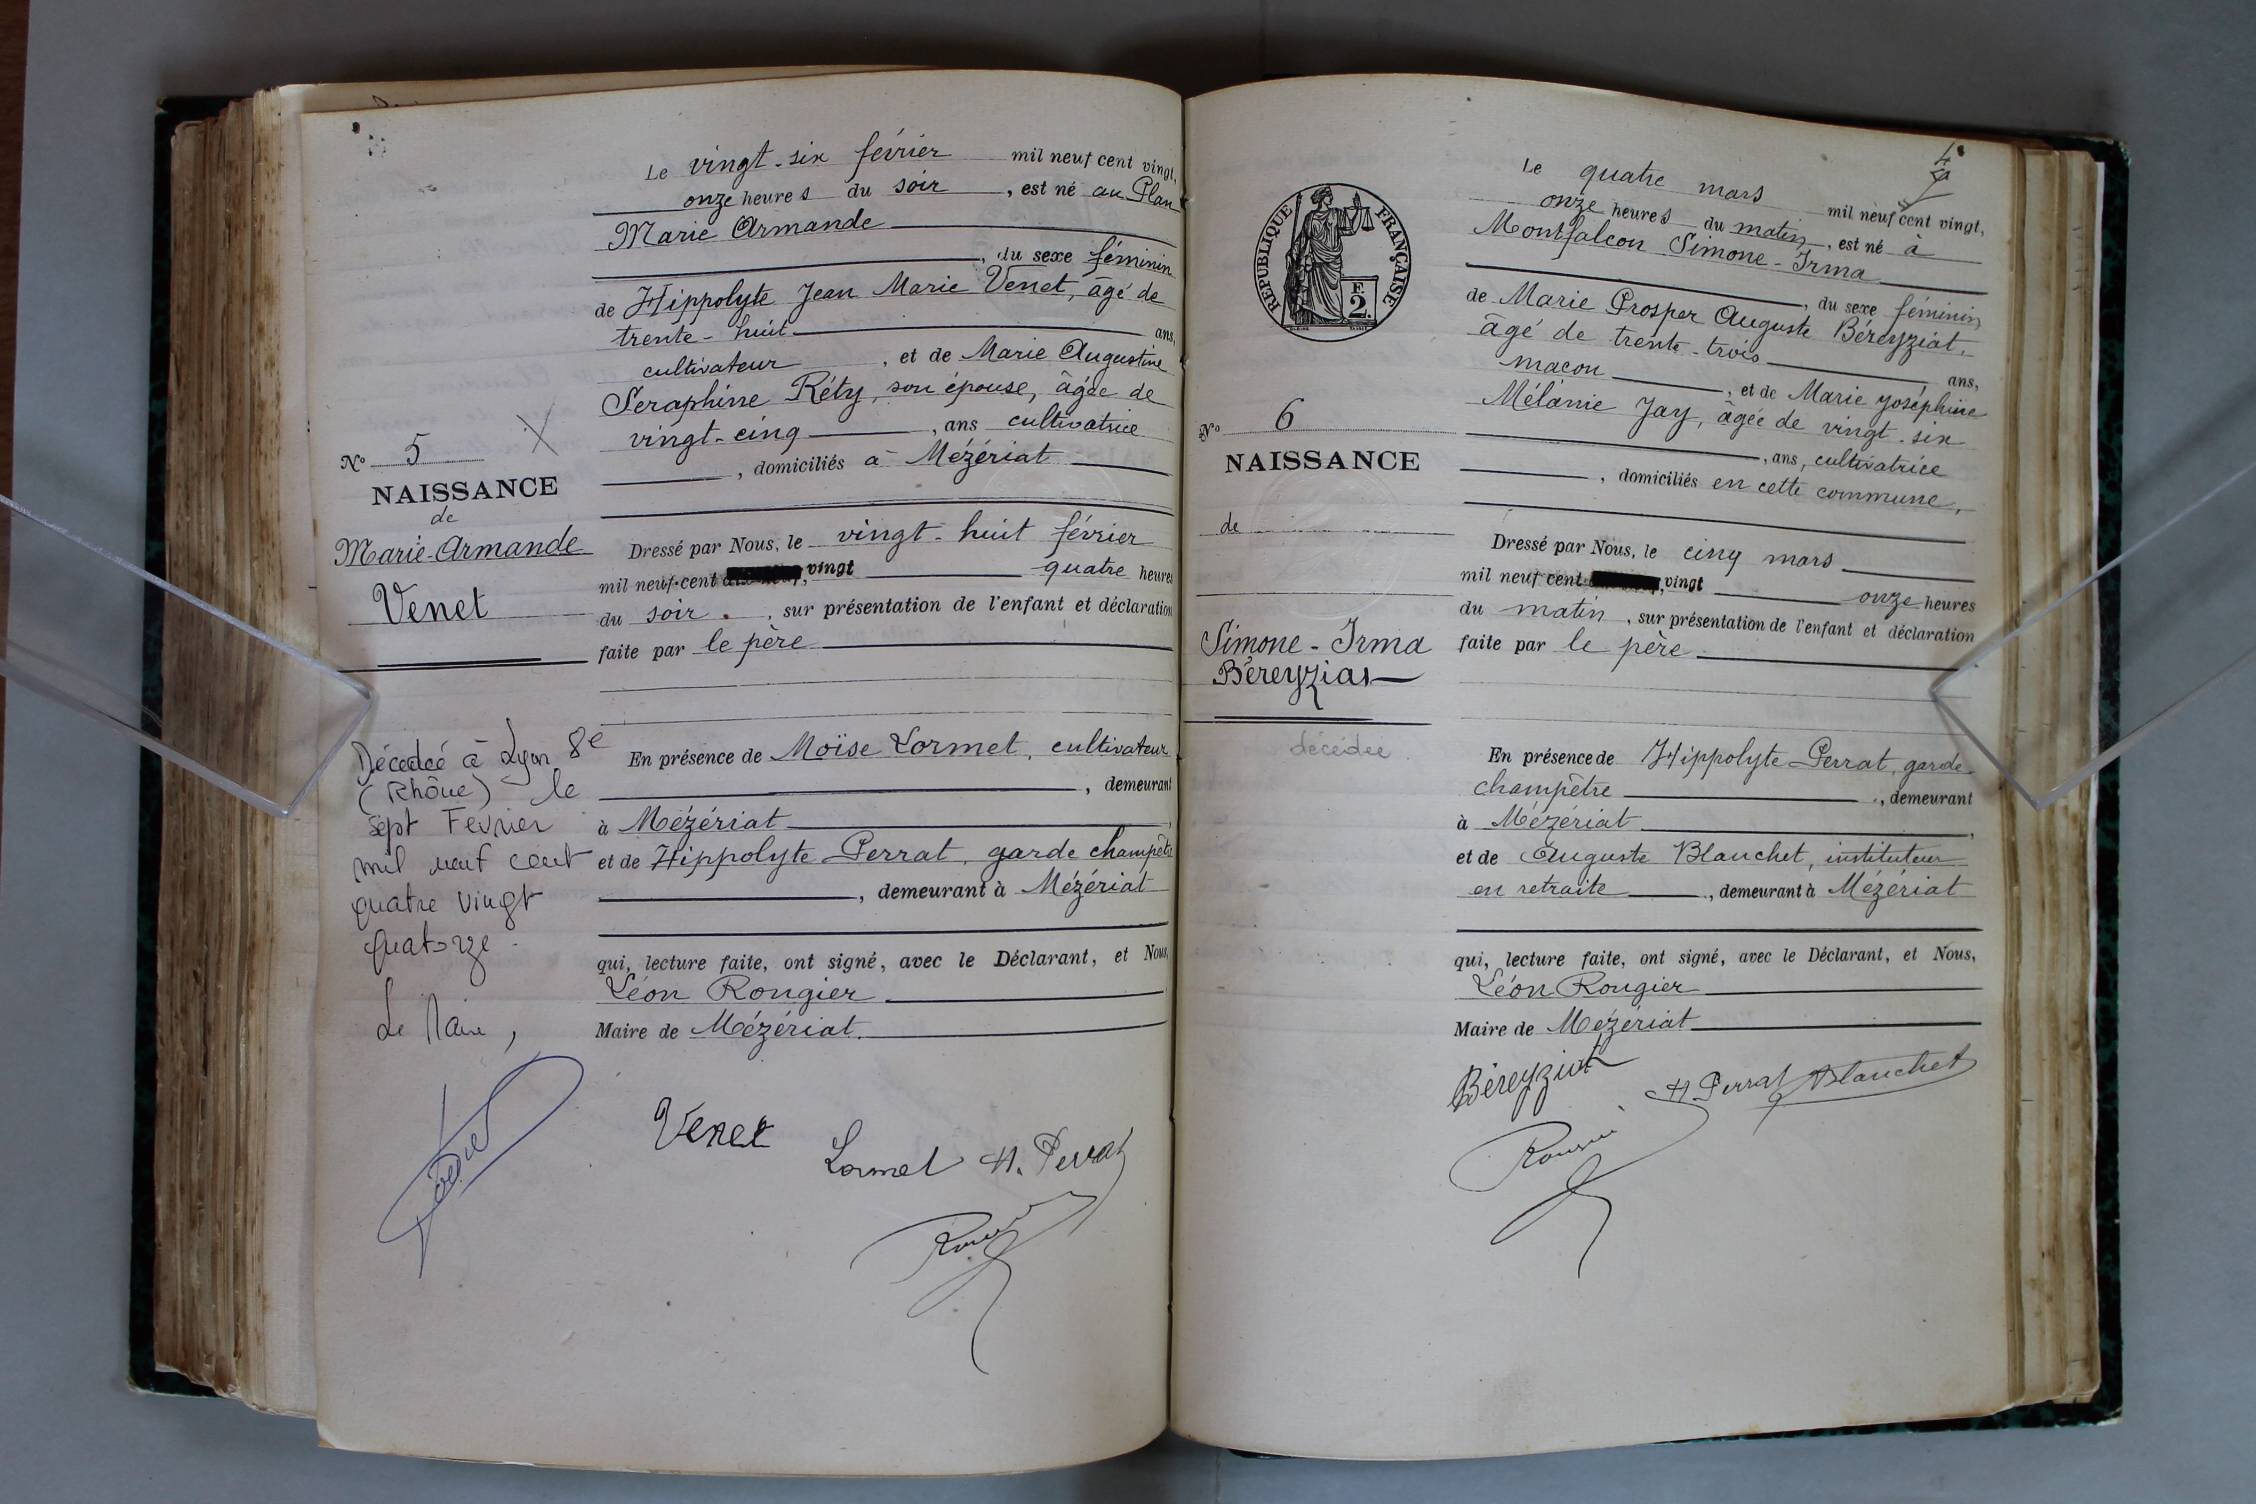 Le vingt-six février mil neuf cent vingt,
onze heures du soir, est né au Plan
Marie Armande
, du sexe féminin
de Hippolyte Jean Marie Venet, âgé de
trente-huit ans,
cultivateur, et de Marie Augustine
Seraphine Réty, son épouse, âgée de
vingt-cinq, ans cultivatrice
, domiciliés à Mézériat
N° 5
NAISSANCE
de
Marie-Armande
Venet
Dressé par Nous, le vingt-huit février
mil neuf cent vingt quatre heures
du soir, sur présentation de l'enfant et déclaration
faite par le père
Décédée à Lyon 8e
(Rhône) le
sept Février
mil neuf cent
quatre vingt
quatorze.
Le Maire,
En présence de Moïse Lormet, cultivateur
, demeurant
à Mézériat
et de Hippolyte Perrat, garde champêtre
, demeurant à Mézériat
qui, lecture faite, ont signé, avec le Déclarant, et Nous,
Léon Rougier
Maire de Mézériat.
Venet
Lormet H. Perrat
4
RÉPUBLIQUE FRANÇAISE
F.
2.
Le quatre mars mil neuf cent vingt,
onze heures du matin, est né à
Montfalcon Simone-Irma
, du sexe féminin
de Marie Prosper Auguste Béreyziat,
âgé de trente-trois ans,
maçon, et de Marie Joséphine
Mélanie Jay, âgée de vingt-six
, ans, cultivatrice
, domiciliés en cette commune,
N° 6
NAISSANCE
de
Simone-Irma
Béreyziat
décédée
Dressé par Nous, le cinq mars
mil neuf cent vingt onze heures
du matin, sur présentation de l'enfant et déclaration
faite par le père
En présence de Hippolyte Perrat, garde
champêtre, demeurant
à Mézériat,
et de Auguste Blanchet, instituteur
en retraite, demeurant à Mézériat
qui, lecture faite, ont signé, avec le Déclarant, et Nous,
Léon Rougier
Maire de Mézériat
Béreyziat H. Perrat Blanchet